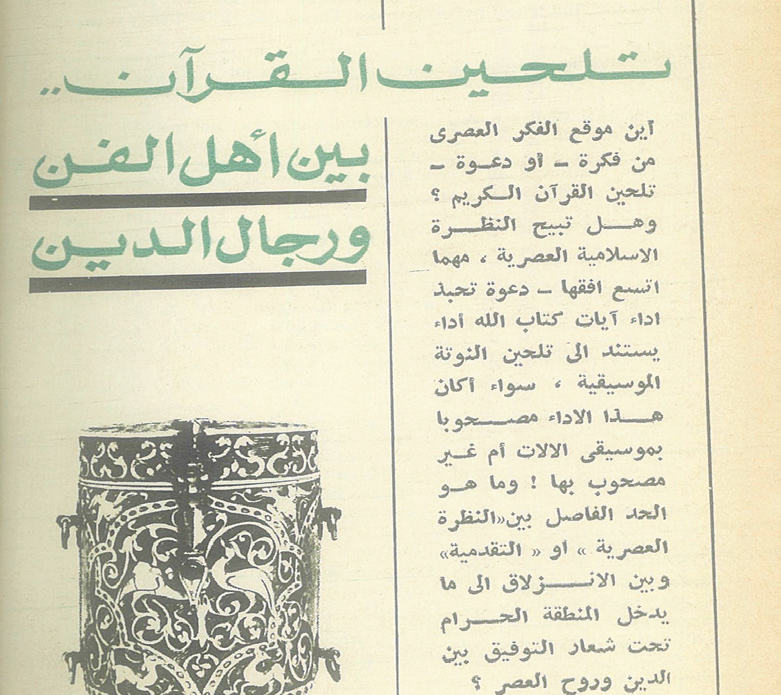 تلحين القرآن..
بين أهل الفن
ورجال الدين
أين موقع الفكر العصرى
من فكرة ــ أو دعوة ــ
تلحين القرآن الكريم ؟
وهل تبيح النظرة
الاسلامية العصرية ، مهما
اتسع افقها ــ دعوة تحبذ
اداء آيات كتاب الله أداء
يستند الى تلحين النوتة
الموسيقية ، سواء أكان
هذا الاداء مصحوبا
بموسيقى الالات أم غير
مصحوب بها ! وما هو
الحد الفاصل بين«النظرة
العصرية » او « التقدمية»
وبين الانزلاق الى ما
يدخل المنطقة الحرام
تحت شعار التوفيق بين
الدين وروح العصر ؟